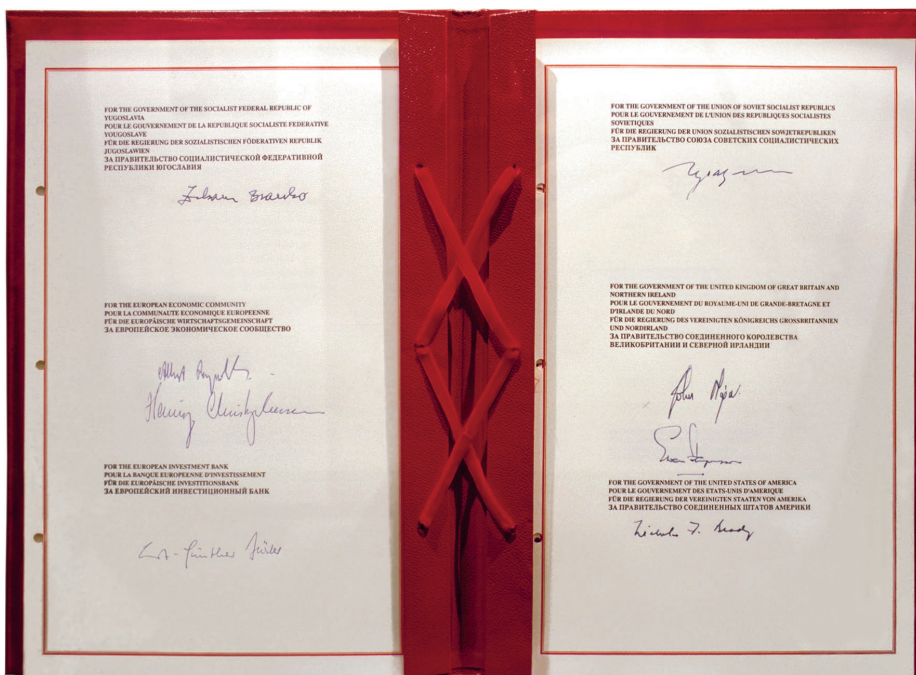 FOR THE GOVERNMENT OF THE SOCIALIST FEDERAL REPUBLIC OF
YUGOSLAVIA
POUR LE GOUVERNEMENT DE LA REPUBLIQUE SOCIALISTE FEDERATIVE
YOUGOSLAVE
FÜR DIE REGIERUNG DER SOZIALISTISCHEN FÖDERATIVEN REPUBLIK
JUGOSLAWIEN
ЗА ПРАВИТЕЛЬСТВО СОЦИАЛИСТИЧЕСКОЙ ФЕДЕРАТИВНОЙ
РЕСПУБЛИКИ ЮГОСЛАВИЯ
FOR THE EUROPEAN ECONOMIC COMMUNITY
POUR LA COMMUNAUTE ECONOMIQUE EUROPEENNE
FÜR DIE EUROPÄISCHE WIRTSCHAFTSGEMEINSCHAFT
ЗА ЕВРОПЕЙСКОЕ ЭКОНОМИЧЕСКОЕ СООБЩЕСТВО
Henning Christophersen
FOR THE EUROPEAN INVESTMENT BANK
POUR LA BANQUE EUROPEENNE D'INVESTISSEMENT
FÜR DIE EUROPÄISCHE INVESTITIONSBANK
ЗА ЕВРОПЕЙСКИЙ ИНВЕСТИЦИОННЫЙ БАНК
FOR THE GOVERNMENT OF THE UNION OF SOVIET SOCIALIST REPUBLICS
POUR LE GOUVERNEMENT DE L'UNION DES REPUBLIQUES SOCIALISTES
SOVIETIQUES
FÜR DIE REGIERUNG DER UNION SOZIALISTISCHER SOWJETREPUBLIKEN
ЗА ПРАВИТЕЛЬСТВО СОЮЗА СОВЕТСКИХ СОЦИАЛИСТИЧЕСКИХ
РЕСПУБЛИК
FOR THE GOVERNMENT OF THE UNITED KINGDOM OF GREAT BRITAIN AND
NORTHERN IRELAND
POUR LE GOUVERNEMENT DU ROYAUME-UNI DE GRANDE-BRETAGNE ET
D'IRLANDE DU NORD
FÜR DIE REGIERUNG DES VEREINIGTEN KÖNIGREICHS GROSSBRITANNIEN
UND NORDIRLAND
ЗА ПРАВИТЕЛЬСТВО СОЕДИНЕННОГО КОРОЛЕВСТВА
ВЕЛИКОБРИТАНИИ И СЕВЕРНОЙ ИРЛАНДИИ
John Major
FOR THE GOVERNMENT OF THE UNITED STATES OF AMERICA
POUR LE GOUVERNEMENT DES ETATS-UNIS D'AMERIQUE
FÜR DIE REGIERUNG DER VEREINIGTEN STAATEN VON AMERIKA
ЗА ПРАВИТЕЛЬСТВО СОЕДИНЕННЫХ ШТАТОВ АМЕРИКИ
Nicholas F. Brady